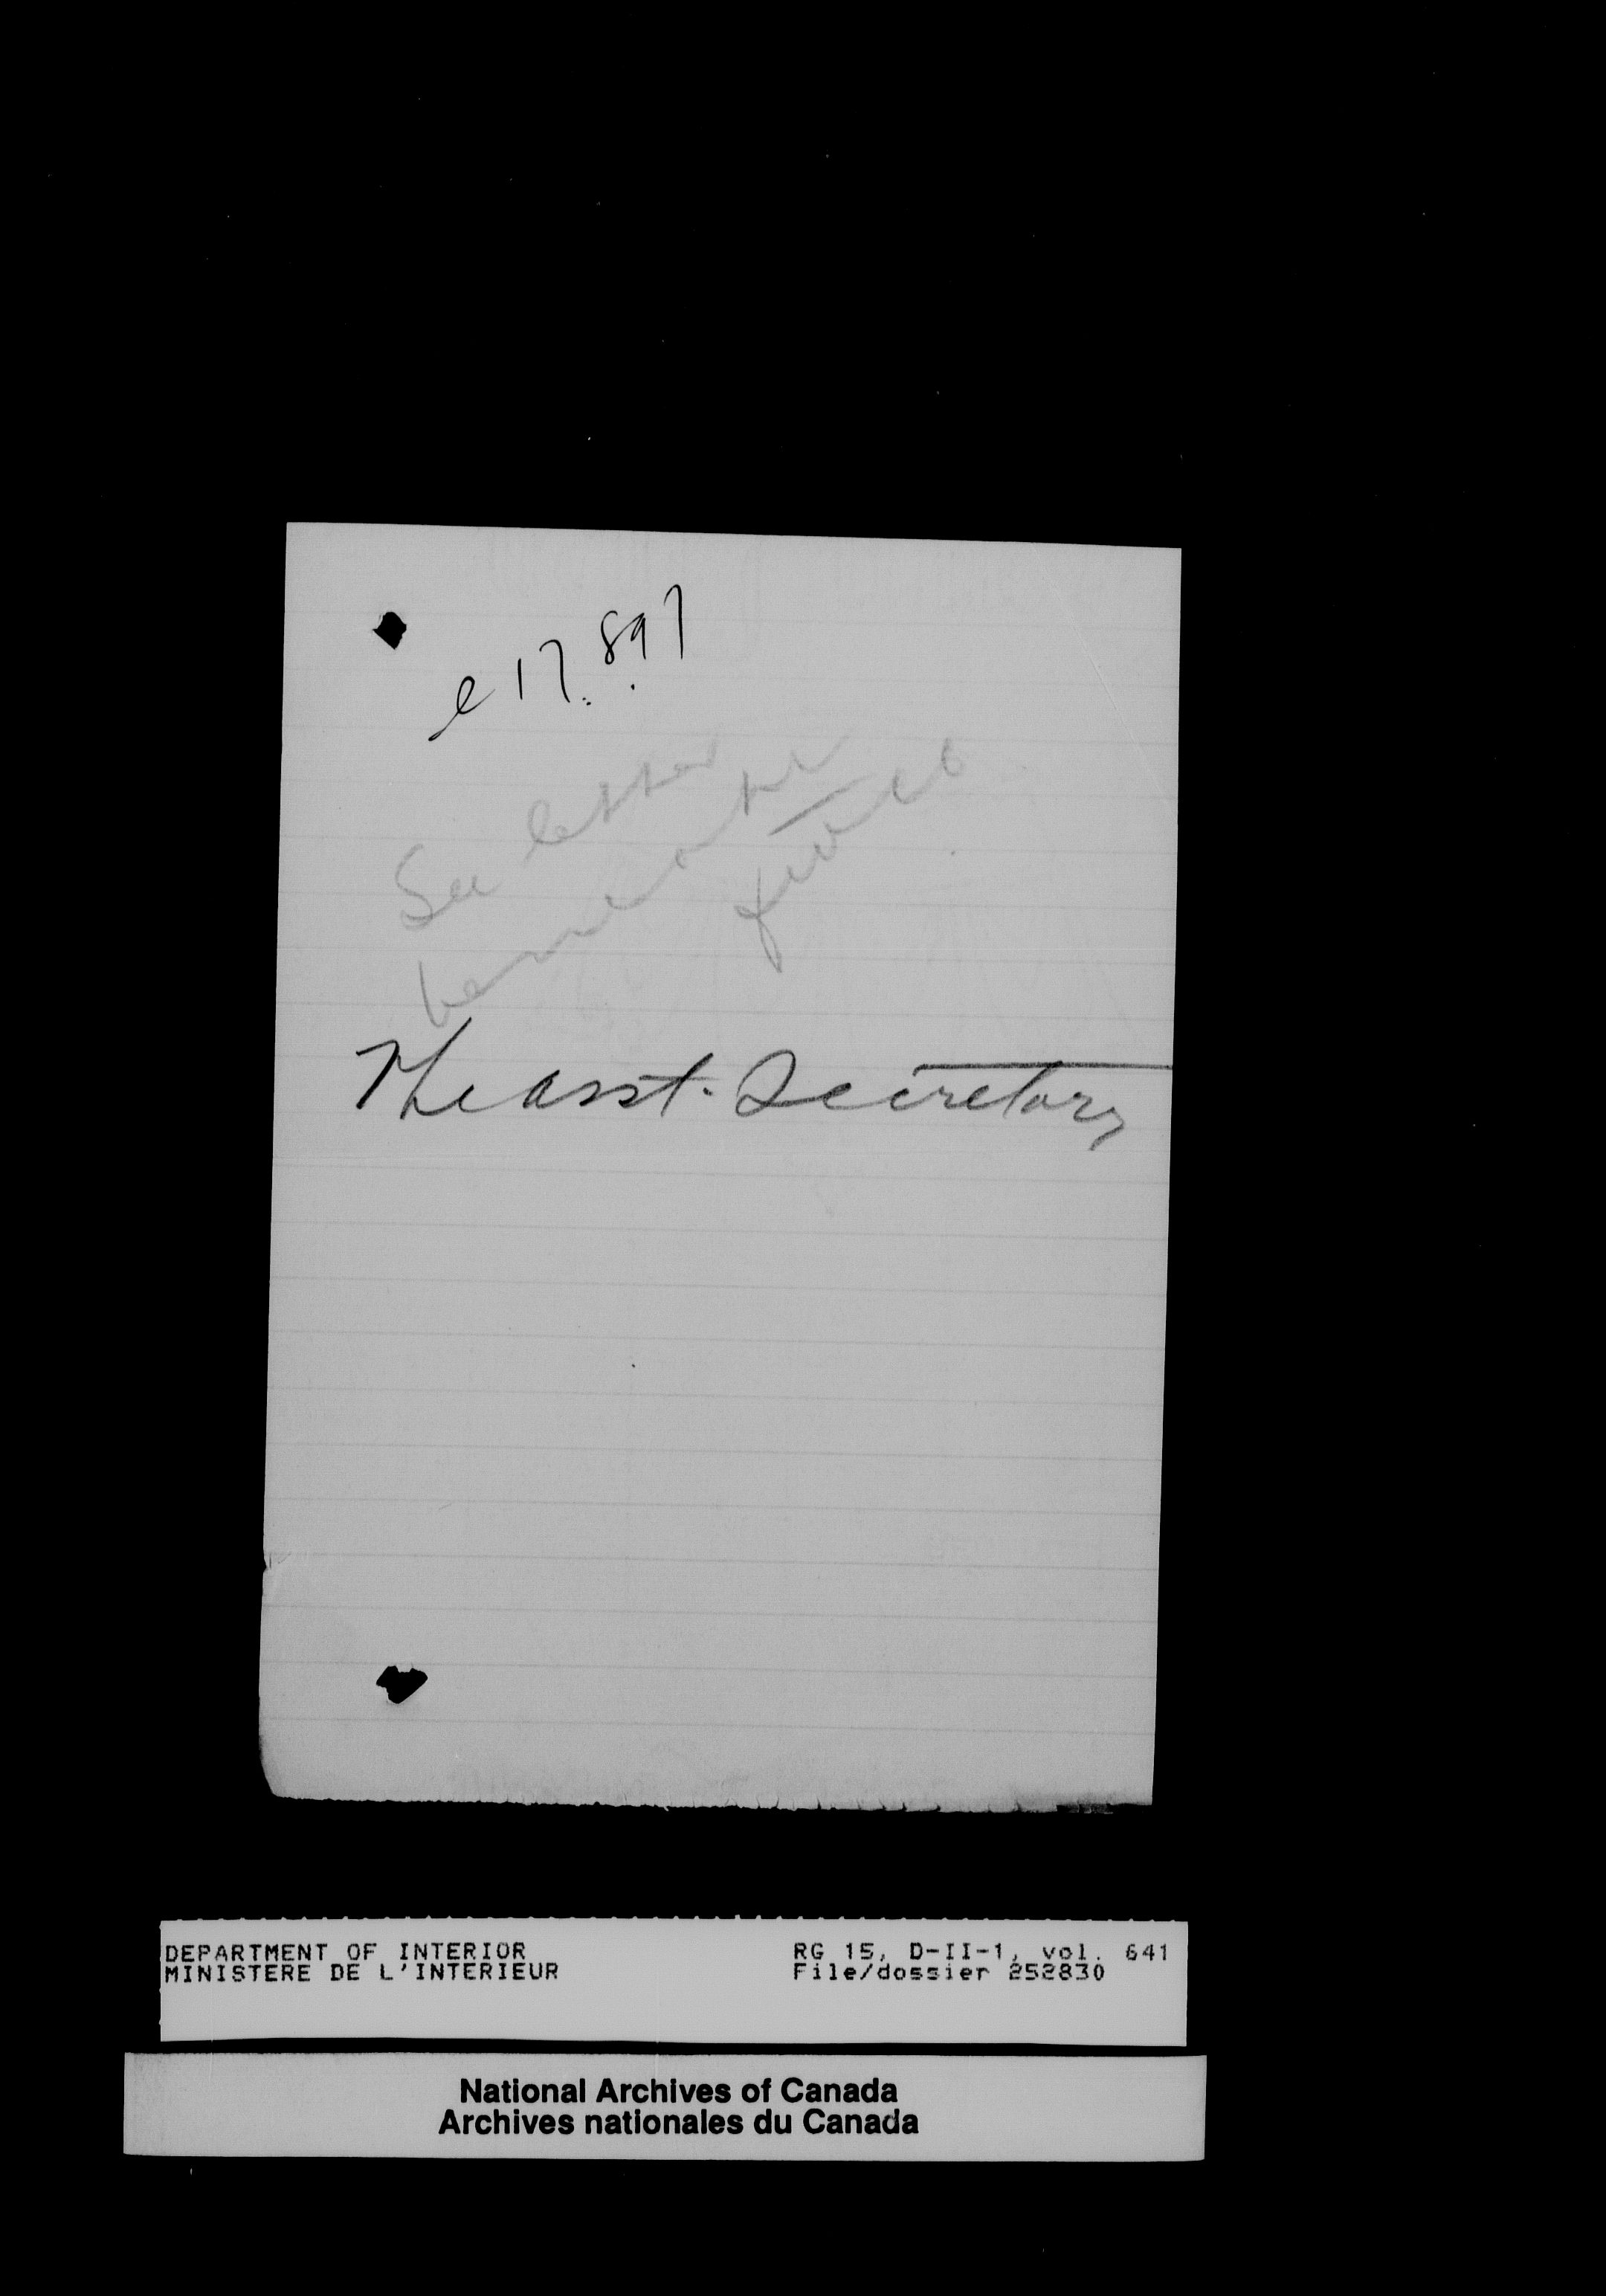 17. 897
See letter
The asst. Secretary
DEPARTMENT OF INTERIOR
MINISTERE DE L'INTERIEUR
RG 15, D-II-1, vol. 641
File/dossier 252830
National Archives of Canada
Archives nationales du Canada